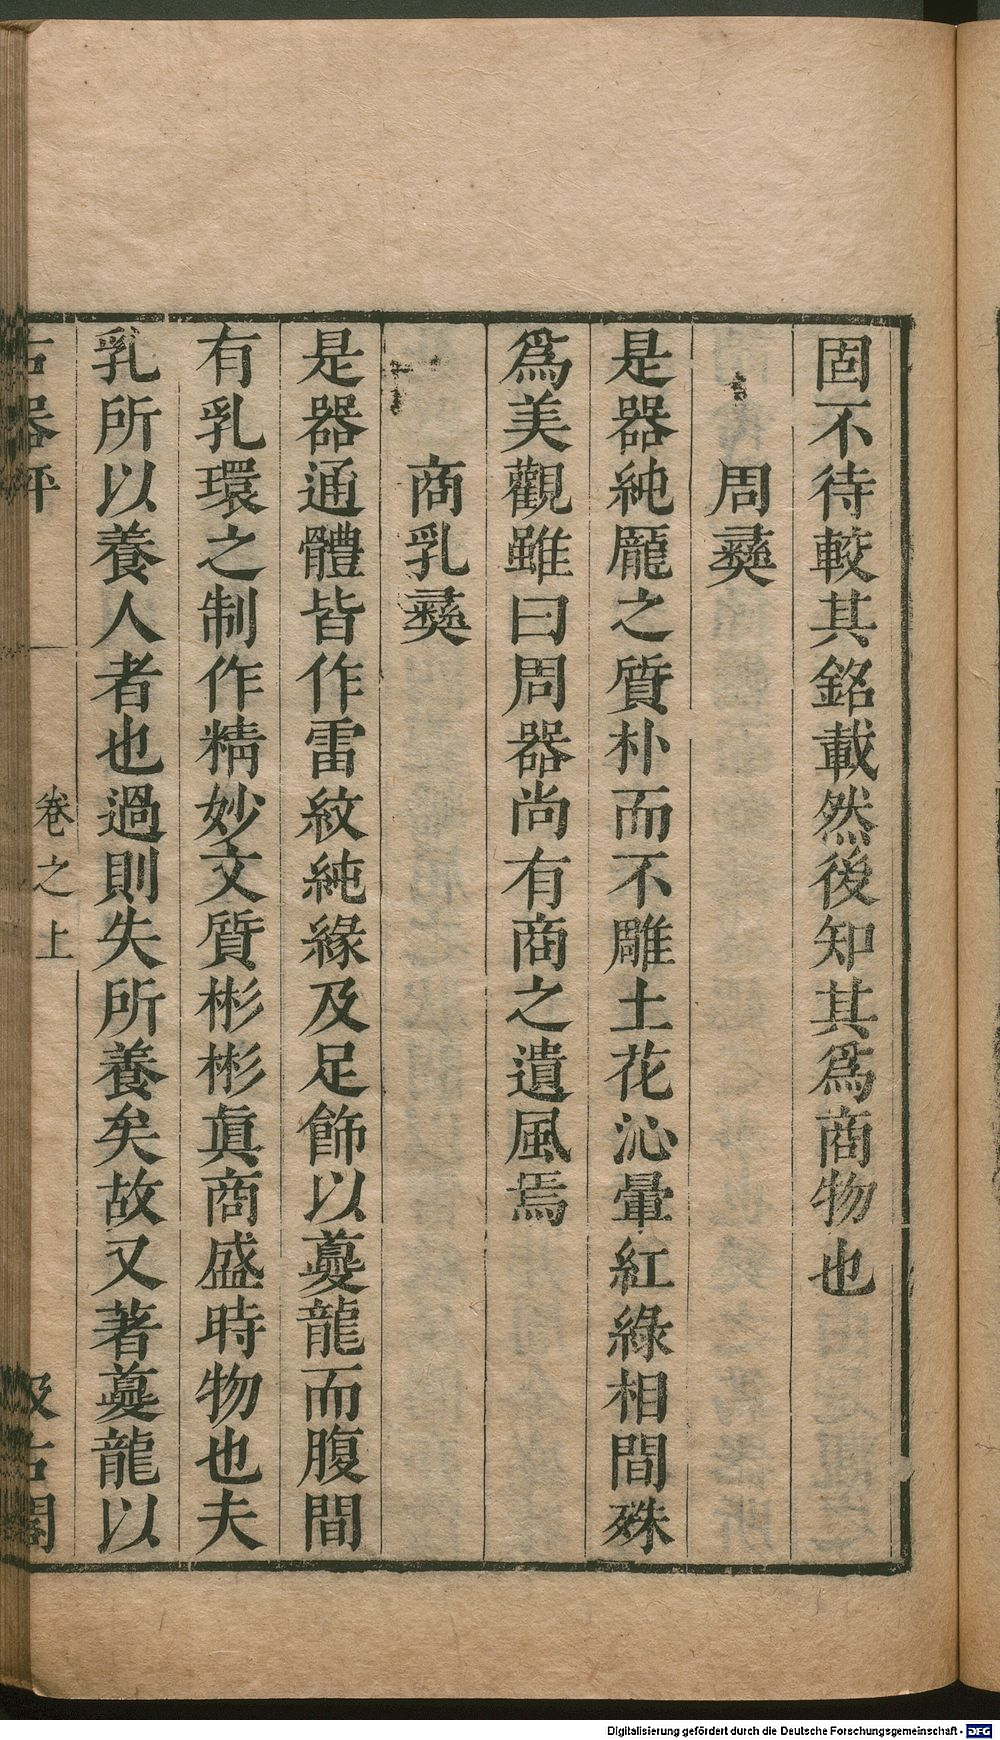 固不待較其銘載然後知其爲商物也
周彞
是器純厖之質朴而不雕土花沁暈紅綠相間殊
爲美觀雖曰周器尚有商之遺風焉
商乳彞
是器通體皆作雷紋純緣及足飾以蘷龍而腹間
有乳環之制作精妙文質彬彬眞商盛時物也夫
乳所以養人者也過則失所養矣故又著蘷龍以
古器評 卷之上 汲古閣
Digitalisierung gefördert durch die Deutsche Forschungsgemeinschaft - DFG